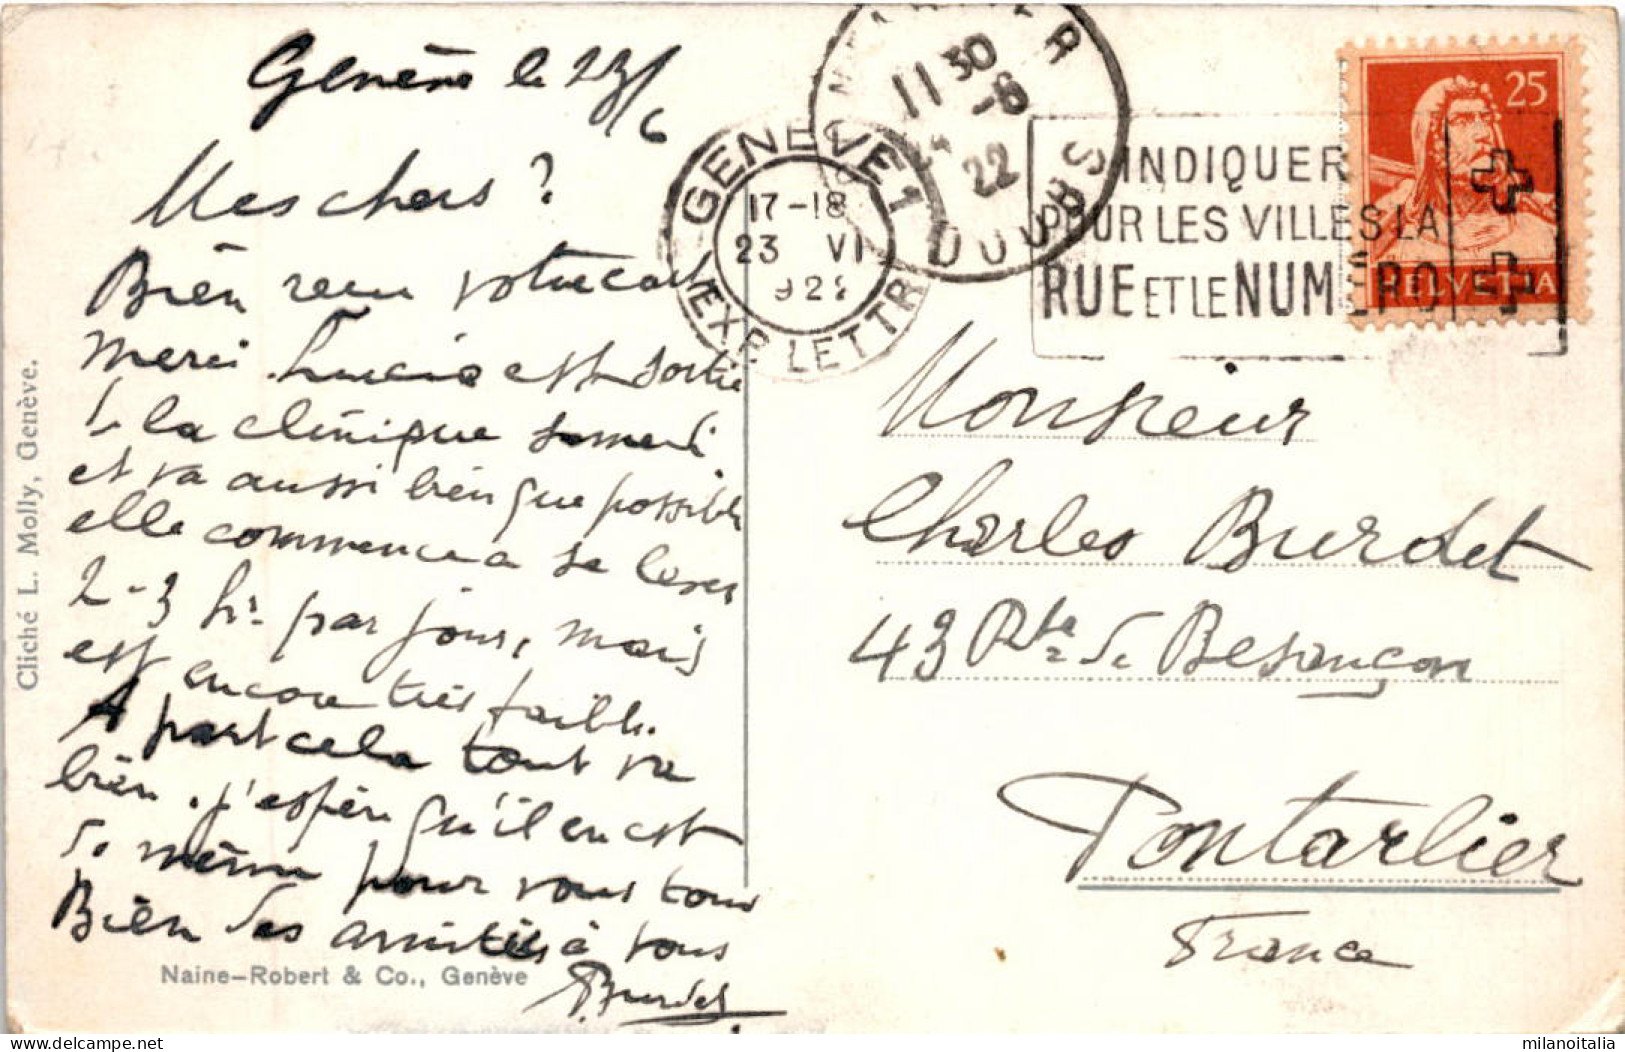 Genève le 23/6
Mes chers ?
Bien reçu votre carte
merci. Lucie est sortie
de la clinique samedi
et va aussi bien que possible
elle commence à se lever
2-3 hrs par jour, mais
est encore très faible.
A part cela tout va
bien. j'espère qu'il en est
de même pour vous tous
Bien des amitiés à tous
Burdet
Naine-Robert & Co., Genève
Cliché L. Molly, Genève.
GENÈVE 1
17-18
23 VI
1922
EXP. LETTR
PONTARLIER
11 30
-6
22
DOUBS
INDIQUER
POUR LES VILLES LA
RUE ET LE NUMÉRO
25
HELVETIA
Monsieur
Charles Burdet
43 Rte de Besançon
Pontarlier
France
delcampe.net
milanoitalia